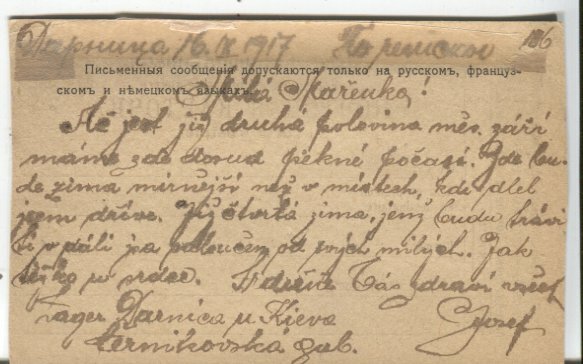 Дарница 16. IX 1917 По чешски 186
Письменныя сообщенія допускаются только на русскомъ, француз-
скомъ и нѣмецкомъ языкахъ.
Milá Mařenko!
Ač jest již druhá polovina měs. září
máme zde dosud pěkné počasí. Zde bu-
de zima mírnější než v místech, kde dlel
jsem dříve. Již čtvrtá zima, jenž budu trávi
ti v dáli jsa odloučen od svých milých. Jak
těžko u srdce. Srdečně Vás zdraví všec
Lager Darnica u Kieva Josef
Černikovská gub.